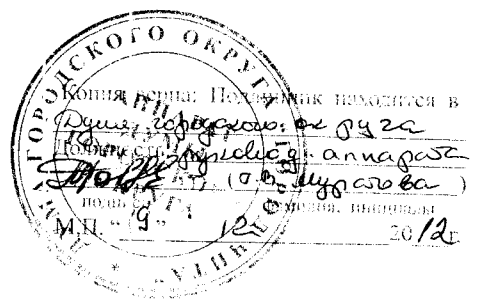 ГОРОДСКОГО ОКРУГА
Копия верна: Подлинник находится в
Думе городского округа
Должность руковод. аппарата
(О.В. Муратова)
подпись фамилия, инициалы
М.П. "9" 12 2012 г.